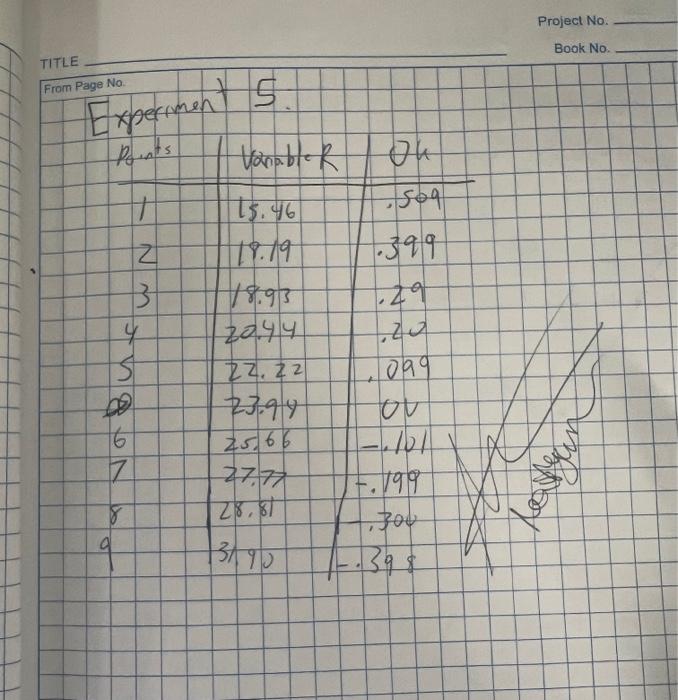 Project No.
Book No.
TITLE
From Page No.
Experiment 5.
Points Variable R
1 15.46 .509
2 .399
3 18.93 .29
4 20.44 .20
5 22.22 .099
23.94 OV
6 25.66 -.101
7 27.77 -.199
8 28.81 -.300
9 31.90 -.398